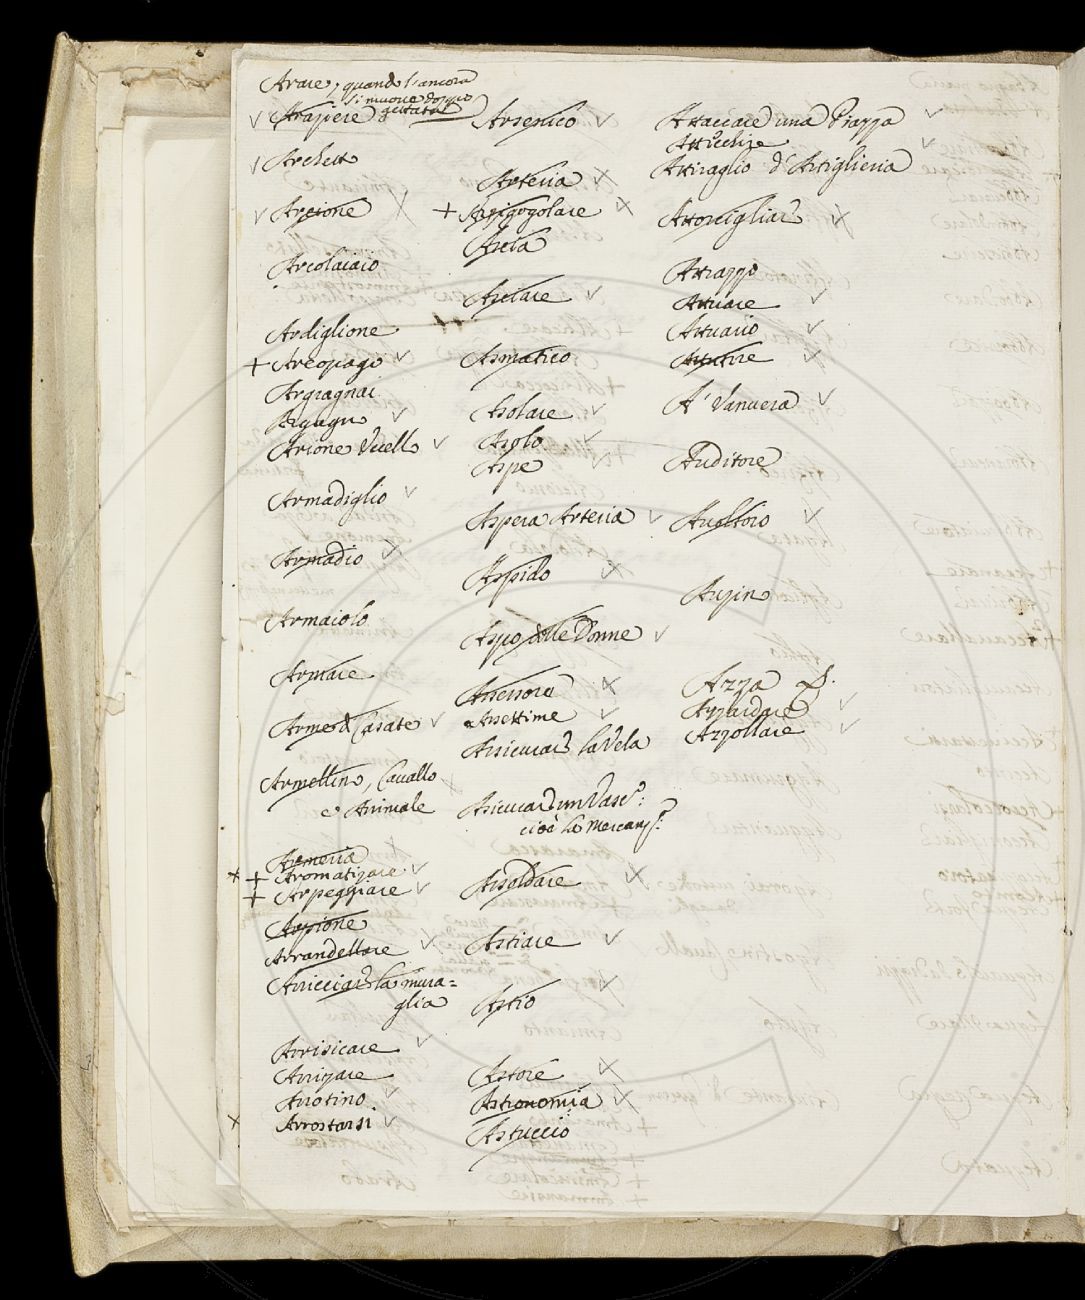 Arare, quando l'ancora
si muove doppo
gettata
Arapere
Archetto
Arcione
Arcolaiaio
Ardiglione
+ Areopago
Argagnai
Arione Vccello
Armadiglio
Armadio
Armaiolo
Armare
Arme d Casate
Armellino, Cavallo
e Animale
Armeria
+ Aromatizare
+ Arpeggiare
Arpione
Arrandellare
Arricciare la mura=
glia
Arrisicare
Arrizare
Arrotino
Arrostarsi
Arsenico
Arteria
+ Arzigogolare
Ascia
Asciare
Asmatico
Asolare
Asolo
Aspe
Aspera Arteria
Aspido
Aspo delle Donne
Assessore
Assettime
Assicurare la Vela
Assicurare un Vasc.º:
cioè la Mercanz.ª
Assoldare
Astiare
Astio
Astore
Astronomia
Astuccio
Attaccare una Piazza
Atticchize
Attiraglio d'Artiglieria
Attorcigliare
Attrappo
Attuare
Attuario
Attutire
A' Vanuera
Auditore
Avoltoio
Azza
Azzardare
Azzollare